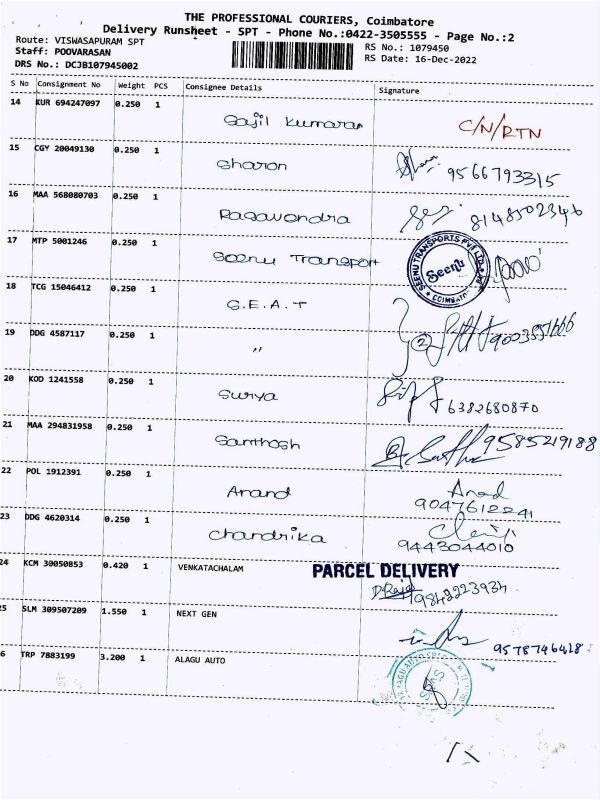 THE PROFESSIONAL COURIERS, Coimbatore
Delivery Runsheet - SPT - Phone No.:0422-3505555 - Page No.:2
Route: VISWASAPURAM SPT RS No.: 1079450
Staff: POOVARASAN RS Date: 16-Dec-2022
DRS No.: DCJB107945002
S No Consignment No Weight PCS Consignee Details Signature
14 KUR 694247097 0.250 1 Sajil Kumaran C/N/RTN
15 CGY 20049130 0.250 1 Sharon 9566793315
16 MAA 568080703 0.250 1 Ragavendra 8148502346
17 MTP 5001246 0.250 1 Seenu Transport SEENU TRANSPORTS PVT LTD Seenu COIMBATORE
18 TCG 15046412 0.250 1 G.E.A.T
19 DDG 4587117 0.250 1 " 2
20 KOD 1241558 0.250 1 Surya 6382680870
21 MAA 294831958 0.250 1 Santhosh 9585219188
22 POL 1912391 0.250 1 Anand Anad
9047612241
23 DDG 4620314 0.250 1 Chandrika
9443044010
24 KCM 30050853 0.420 1 VENKATACHALAM PARCEL DELIVERY
D.Raja 9842223934
5 SLM 309507209 1.550 1 NEXT GEN
9578746428
6 TRP 7883199 3.200 1 ALAGU AUTO